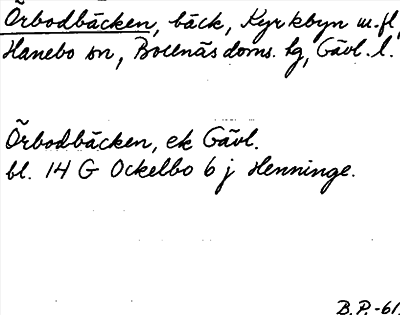 Örbodbäcken, bäck, Kyrkbyn m.fl,
Hanebo sn, Bollnäs doms. tg, Gävl. l.
Örbodbäcken, ek Gävl.
bl. 14 G Ockelbo 6 j Henninge.
B.P.-61.